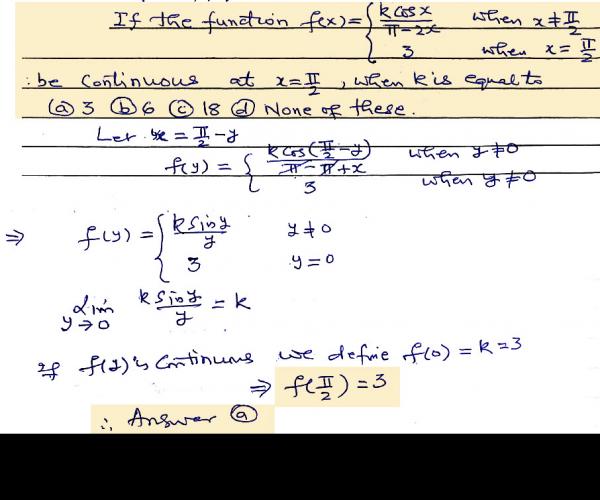 If the function f(x) = { k cos x / π - 2x when x ≠ π/2
3 when x = π/2
be continuous at x = π/2, when k is equal to
(a) 3 (b) 6 (c) 18 (d) None of these.
Let x = π/2 - y
f(y) = { k cos(π/2 - y) / π - π + x when y ≠ 0
3 when y ≠ 0
⇒ f(y) = { k sin y / y y ≠ 0
3 y = 0
Lim y→0 k sin y / y = k
If f(y) is continuous we define f(0) = k = 3
⇒ f(π/2) = 3
∴ Answer (a)